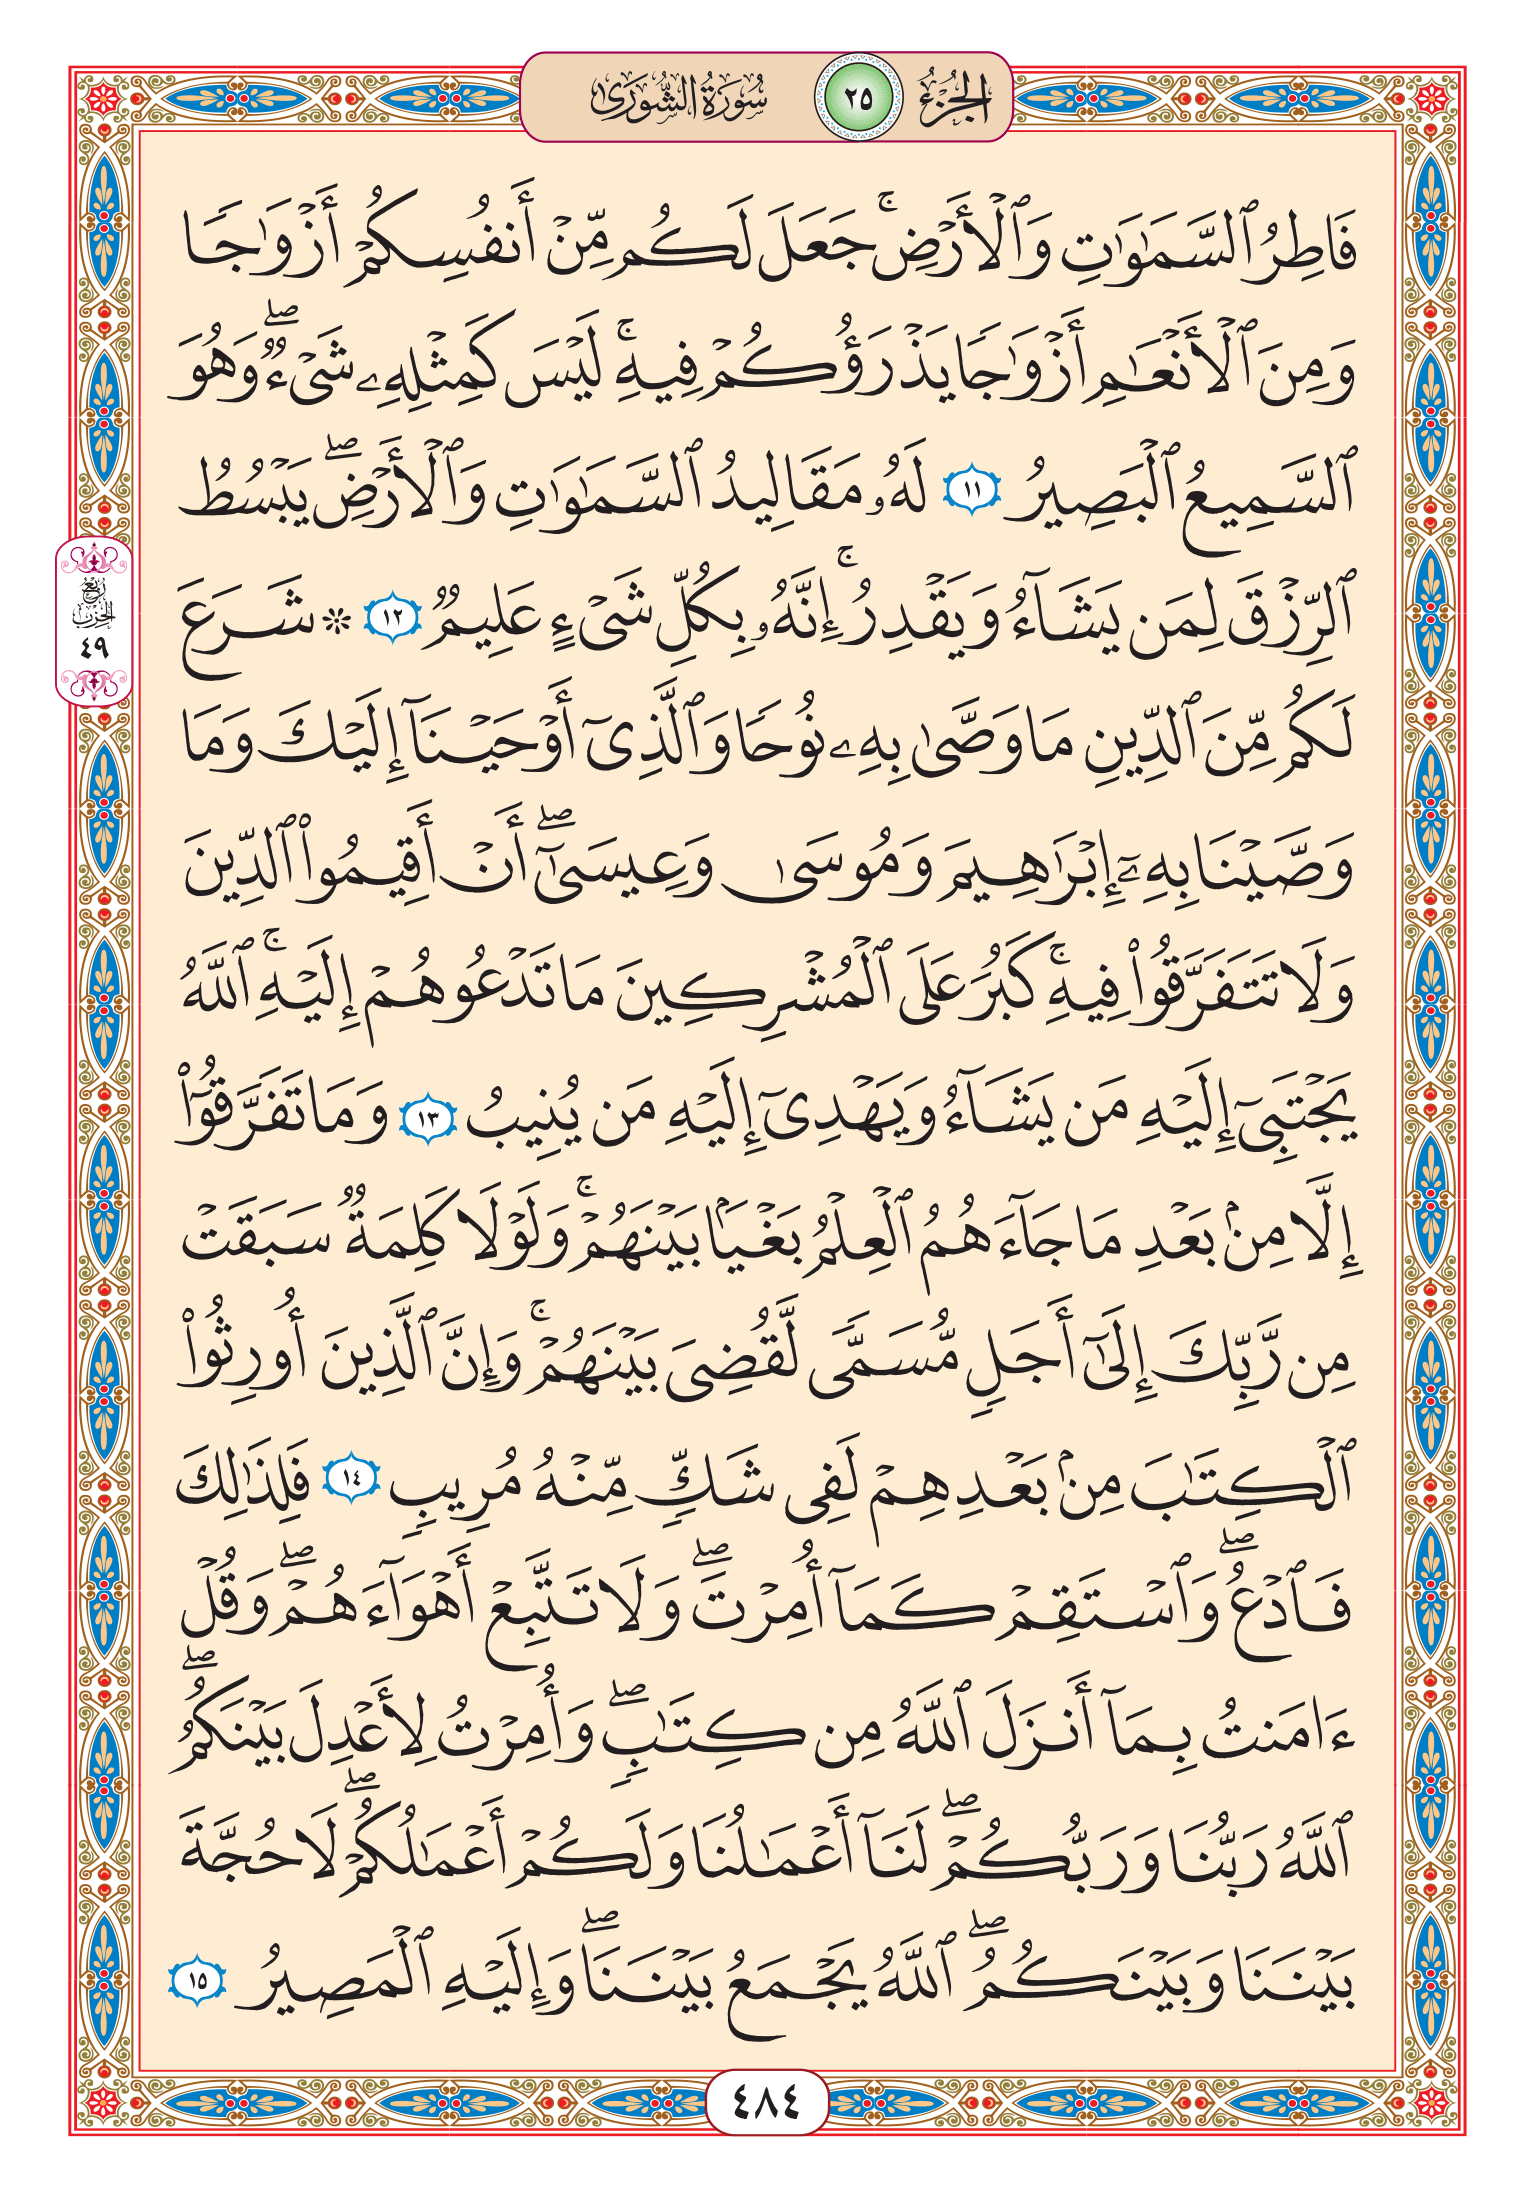 الجزء ٢٥ سورة الشورى
فَاطِرُ ٱلسَّمَٰوَٰتِ وَٱلْأَرْضِ ۚ جَعَلَ لَكُم مِّنْ أَنفُسِكُمْ أَزْوَٰجًا
وَمِنَ ٱلْأَنْعَٰمِ أَزْوَٰجًا يَذْرَؤُكُمْ فِيهِ ۚ لَيْسَ كَمِثْلِهِۦ شَىْءٌ ۖ وَهُوَ
ٱلسَّمِيعُ ٱلْبَصِيرُ ١١ لَهُۥ مَقَالِيدُ ٱلسَّمَٰوَٰتِ وَٱلْأَرْضِ ۖ يَبْسُطُ
ٱلرِّزْقَ لِمَن يَشَآءُ وَيَقْدِرُ ۚ إِنَّهُۥ بِكُلِّ شَىْءٍ عَلِيمٌ ١٢ ۞ شَرَعَ
ربع الحزب ٤٩
لَكُم مِّنَ ٱلدِّينِ مَا وَصَّىٰ بِهِۦ نُوحًا وَٱلَّذِىٓ أَوْحَيْنَآ إِلَيْكَ وَمَا
وَصَّيْنَا بِهِۦٓ إِبْرَٰهِيمَ وَمُوسَىٰ وَعِيسَىٰٓ ۖ أَنْ أَقِيمُوا۟ ٱلدِّينَ
وَلَا تَتَفَرَّقُوا۟ فِيهِ ۚ كَبُرَ عَلَى ٱلْمُشْرِكِينَ مَا تَدْعُوهُمْ إِلَيْهِ ۚ ٱللَّهُ
يَجْتَبِىٓ إِلَيْهِ مَن يَشَآءُ وَيَهْدِىٓ إِلَيْهِ مَن يُنِيبُ ١٣ وَمَا تَفَرَّقُوٓا۟
إِلَّا مِنۢ بَعْدِ مَا جَآءَهُمُ ٱلْعِلْمُ بَغْيًۢا بَيْنَهُمْ ۚ وَلَوْلَا كَلِمَةٌ سَبَقَتْ
مِن رَّبِّكَ إِلَىٰٓ أَجَلٍ مُّسَمًّى لَّقُضِىَ بَيْنَهُمْ ۚ وَإِنَّ ٱلَّذِينَ أُورِثُوا۟
ٱلْكِتَٰبَ مِنۢ بَعْدِهِمْ لَفِى شَكٍّ مِّنْهُ مُرِيبٍ ١٤ فَلِذَٰلِكَ
فَٱدْعُ ۖ وَٱسْتَقِمْ كَمَآ أُمِرْتَ ۖ وَلَا تَتَّبِعْ أَهْوَآءَهُمْ ۖ وَقُلْ
ءَامَنتُ بِمَآ أَنزَلَ ٱللَّهُ مِن كِتَٰبٍ ۖ وَأُمِرْتُ لِأَعْدِلَ بَيْنَكُمُ ۖ
ٱللَّهُ رَبُّنَا وَرَبُّكُمْ ۖ لَنَآ أَعْمَٰلُنَا وَلَكُمْ أَعْمَٰلُكُمْ ۖ لَا حُجَّةَ
بَيْنَنَا وَبَيْنَكُمُ ۖ ٱللَّهُ يَجْمَعُ بَيْنَنَا ۖ وَإِلَيْهِ ٱلْمَصِيرُ ١٥
٤٨٤